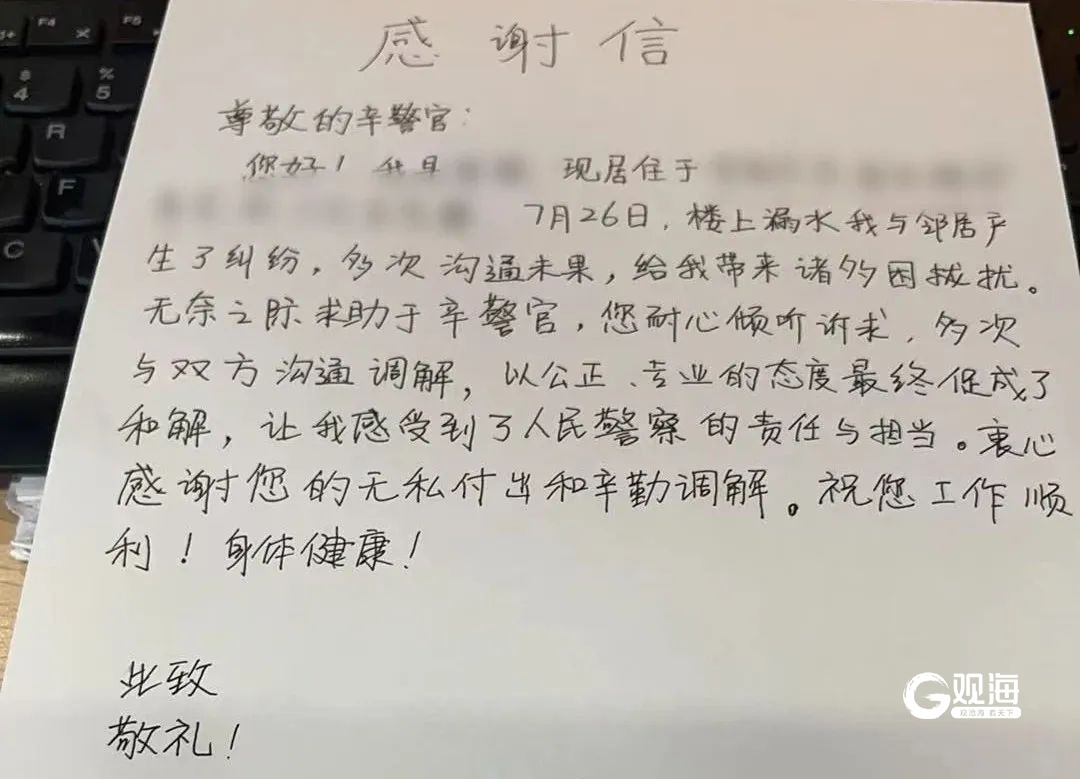 感谢信
尊敬的辛警官：
您好！我是 现居住于
7月26日，楼上漏水我与邻居产
生了纠纷，多次沟通未果，给我带来诸多困拔扰。
无奈之际求助于辛警官，您耐心倾听诉求，多次
与双方沟通调解，以公正、专业的态度最终促成了
和解，让我感受到了人民警察的责任与担当。衷心
感谢您的无私付出和辛勤调解。祝您工作顺
利！身体健康！
此致
敬礼！
G观海
观沧海 看天下
F4
F5
$
4
%
5
R
F
C